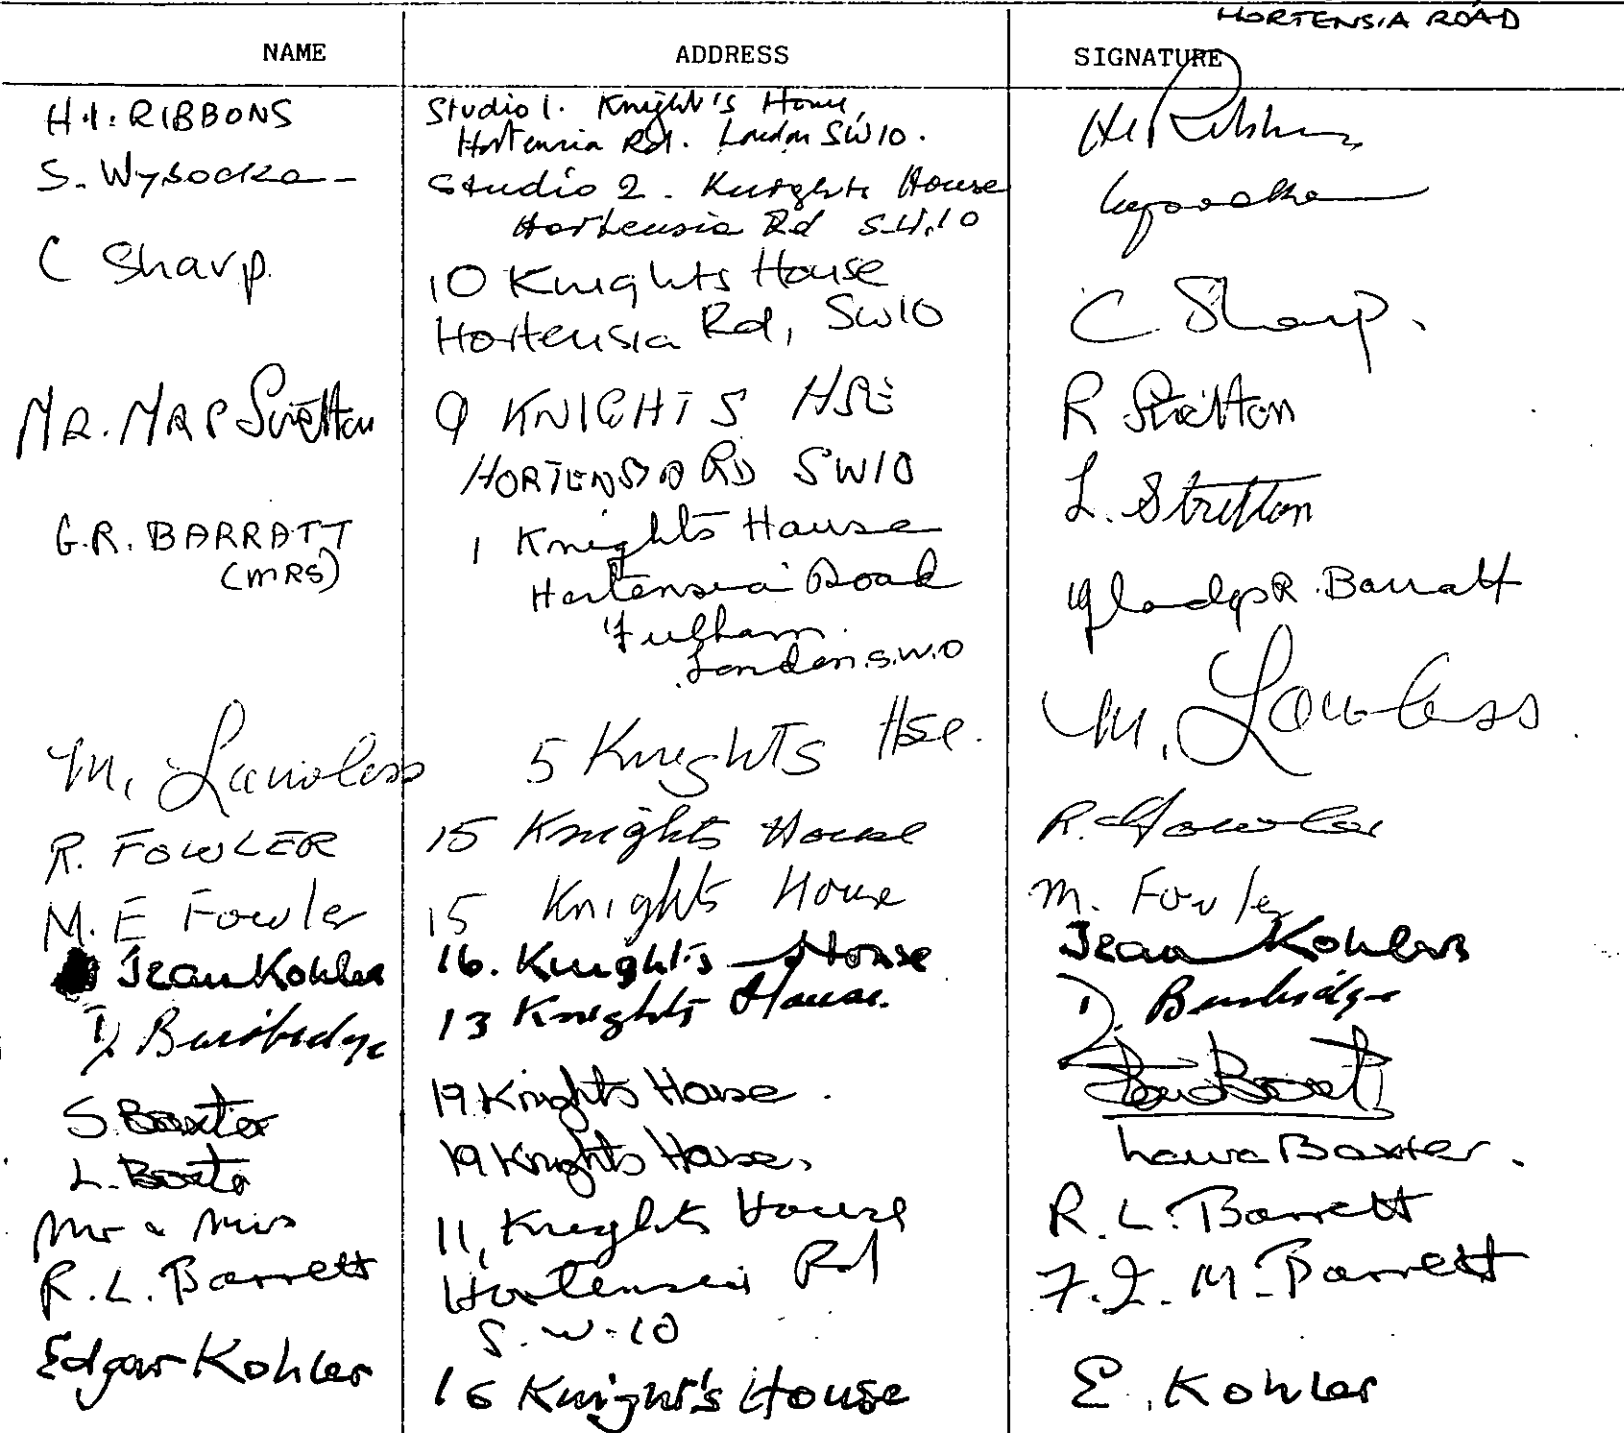 HORTENSIA ROAD
NAME ADDRESS SIGNATURE
H.I. RIBBONS Studio 1. Knight's House,
Hortensia Rd. London SW10.
S. Wysocka Studio 2. Knights House
Hortensia Rd S.W.10
C Sharp. 10 Knights House C. Sharp.
Hortensia Rd, SW10
MR. MRS Stretton 9 KNIGHTS HSE R Stretton
HORTENSIA RD SW10 L. Stretton
G.R. BARRATT 1 Knights House
(MRS) Hortensia Road Gladys R. Barratt
Fulham.
London. S.W.O
M. Lawless 5 Knights Hse. M. Lawless.
R. FOWLER 15 Knights House R. Fowler
M. E Fowler 15 Knights House M. Fowler
Jean Kohler 16. Knight's House Jean Kohler
D. Burbidge 13 Knights House. D. Burbidge
S. Baxter 19 Knights House.
L. Baxter 19 Knights House. Laura Baxter.
Mr & Mrs 11, Knights House R. L. Barrett
R. L. Barrett Hortensia Rd F. I. M. Barrett
S.W.10
Edgar Kohler 16 Knight's House E. Kohler